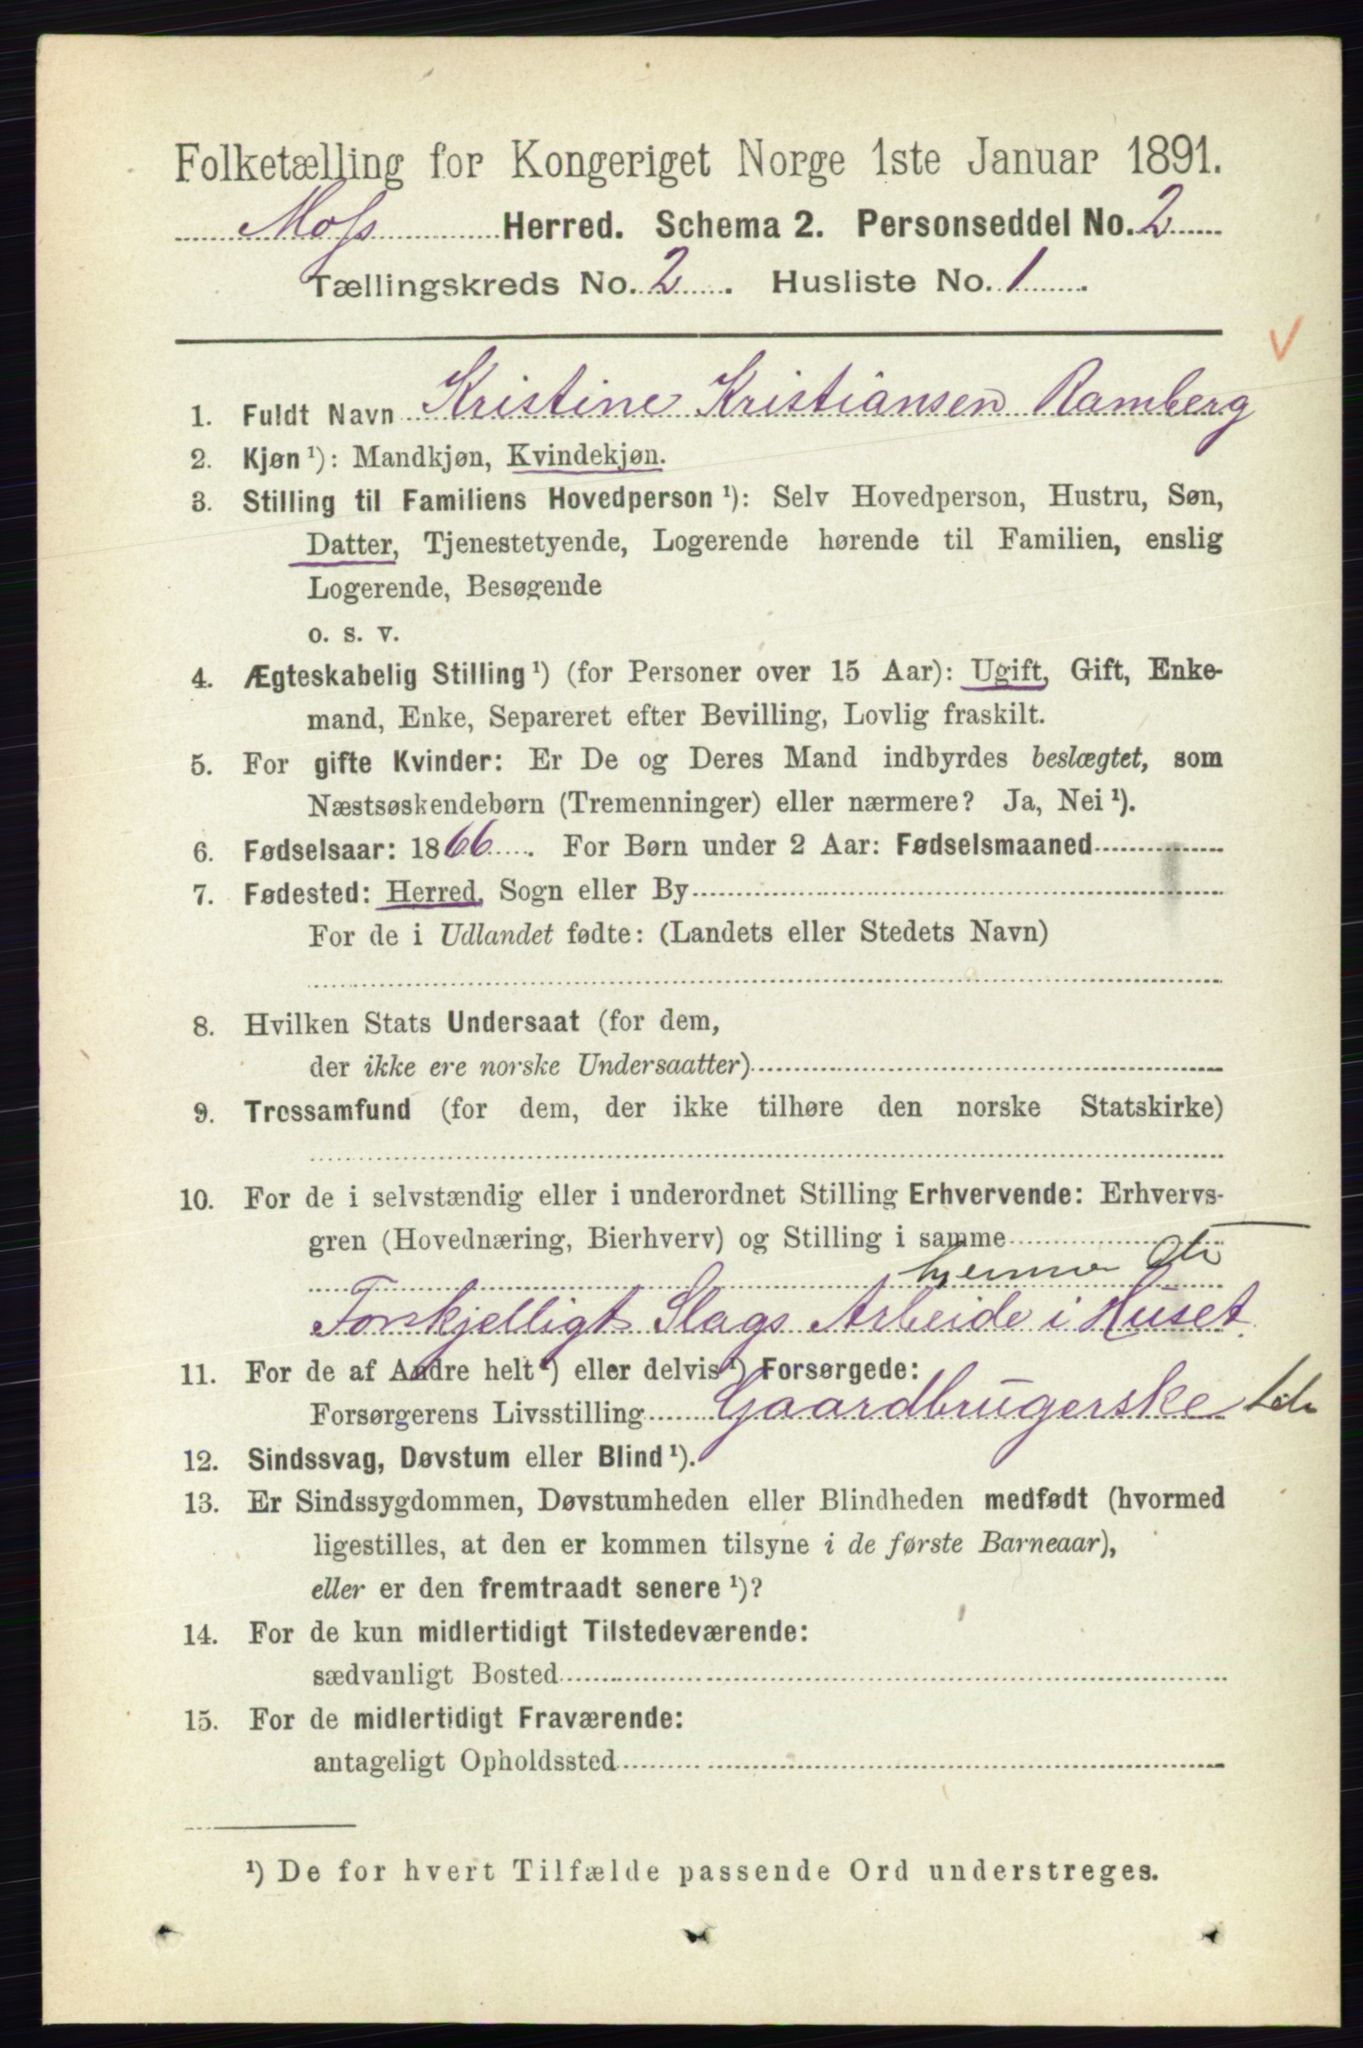 Folketælling for Kongeriget Norge 1ste Januar 1891.
Moss Herred. Schema 2. Personseddel No. 2
Tællingskreds No. 2. Husliste No. 1.
1. Fuldt Navn Kristine Kristiansen Ramberg
2. Kjøn ¹): Mandkjøn, Kvindekjøn.
3. Stilling til Familiens Hovedperson ¹): Selv Hovedperson, Hustru, Søn,
Datter, Tjenestetyende, Logerende hørende til Familien, enslig
Logerende, Besøgende
o. s. v.
4. Ægteskabelig Stilling ¹) (for Personer over 15 Aar): Ugift, Gift, Enke-
mand, Enke, Separeret efter Bevilling, Lovlig fraskilt.
5. For gifte Kvinder: Er De og Deres Mand indbyrdes beslægtet, som
Næstsøskendebørn (Tremenninger) eller nærmere? Ja, Nei ¹).
6. Fødselsaar: 1866. For Børn under 2 Aar: Fødselsmaaned
7. Fødested: Herred, Sogn eller By
For de i Udlandet fødte: (Landets eller Stedets Navn)
8. Hvilken Stats Undersaat (for dem,
der ikke ere norske Undersaatter)
9. Trossamfund (for dem, der ikke tilhøre den norske Statskirke)
10. For de i selvstændig eller i underordnet Stilling Erhvervende: Erhvervs-
gren (Hovednæring, Bierhverv) og Stilling i samme
hjemme
Forskjelligt Slags Arbeide i Huset.
11. For de af Andre helt ¹) eller delvis ¹) Forsørgede:
Forsørgerens Livsstilling Gaardbrugerske
12. Sindssvag, Døvstum eller Blind ¹).
13. Er Sindssygdommen, Døvstumheden eller Blindheden medfødt (hvormed
ligestilles, at den er kommen tilsyne i de første Barneaar),
eller er den fremtraadt senere ¹)?
14. For de kun midlertidigt Tilstedeværende:
sædvanligt Bosted
15. For de midlertidigt Fraværende:
antageligt Opholdssted
¹) De for hvert Tilfælde passende Ord understreges.